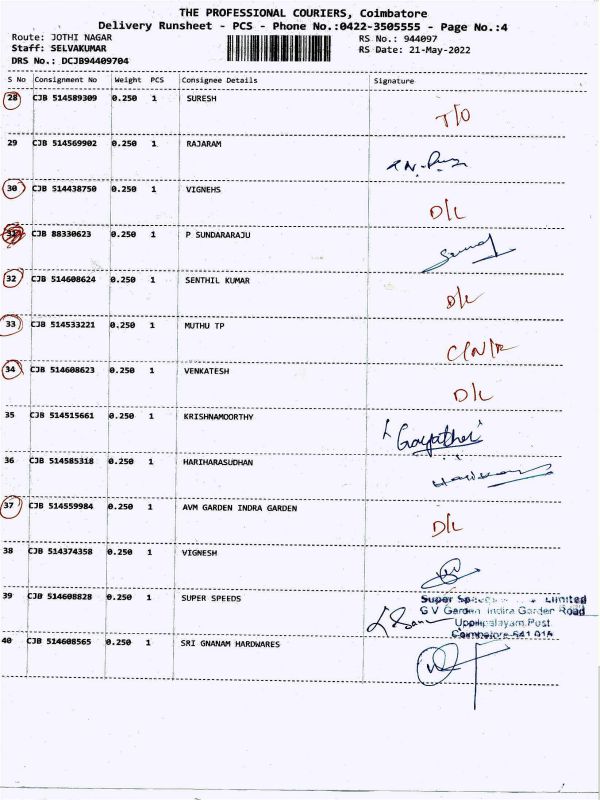 THE PROFESSIONAL COURIERS, Coimbatore
Delivery Runsheet - PCS - Phone No.:0422-3505555 - Page No.:4
Route: JOTHI NAGAR RS No.: 944097
Staff: SELVAKUMAR RS Date: 21-May-2022
DRS No.: DCJB94409704
S No Consignment No Weight PCS Consignee Details Signature
28 CJB 514589309 0.250 1 SURESH
T/O
29 CJB 514569902 0.250 1 RAJARAM
30 CJB 514438750 0.250 1 VIGNEHS
D/L
31 CJB 88330623 0.250 1 P SUNDARARAJU
32 CJB 514608624 0.250 1 SENTHIL KUMAR
D/L
33 CJB 514533221 0.250 1 MUTHU TP
C/N/R
34 CJB 514608623 0.250 1 VENKATESH
D/L
35 CJB 514515661 0.250 1 KRISHNAMOORTHY
Gayathri
36 CJB 514585318 0.250 1 HARIHARASUDHAN
37 CJB 514559984 0.250 1 AVM GARDEN INDRA GARDEN
D/L
38 CJB 514374358 0.250 1 VIGNESH
39 CJB 514608828 0.250 1 SUPER SPEEDS
Super Limited
G V Garden Indira Garden Road
Uppilipalayam Post
Coimbatore-641 015
40 CJB 514608565 0.250 1 SRI GNANAM HARDWARES